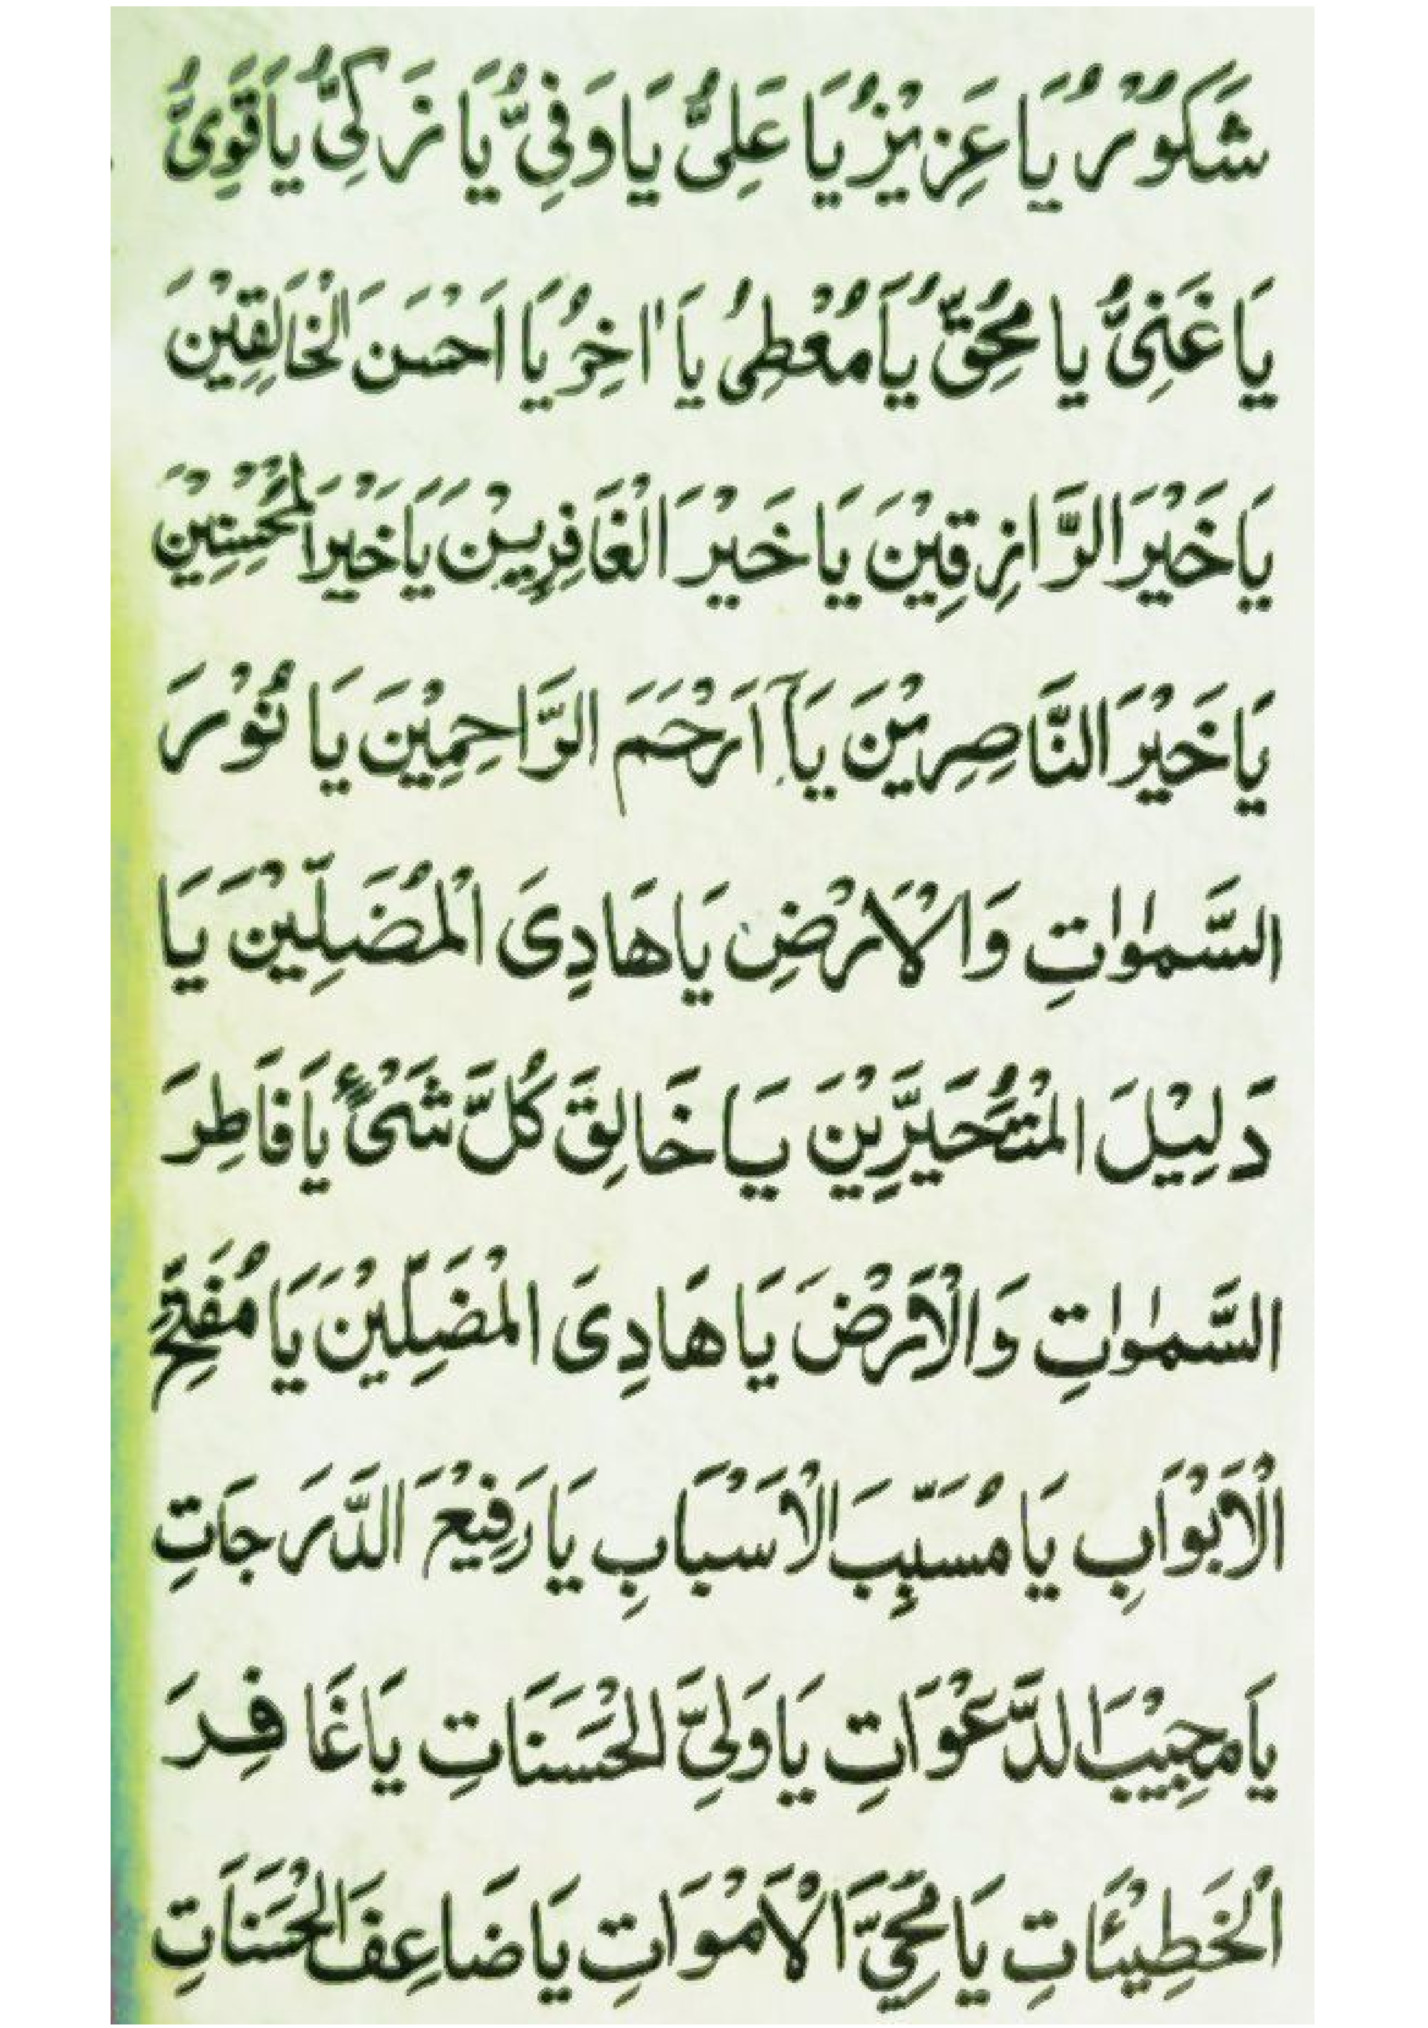 شَكُوْرُ يَا عَزِيْزُ يَا عَلِيُّ يَا وَفِيُّ يَا زَكِيُّ يَا قَوِيُّ
يَا غَنِيُّ يَا مُحِقُّ يَا مُعْطِيُ يَا اٰخِرُ يَا اَحْسَنَ الْخَالِقِيْنَ
يَا خَيْرَ الرَّازِقِيْنَ يَا خَيْرَ الْغَافِرِيْنَ يَا خَيْرَ الْمُحْسِنِيْنَ
يَا خَيْرَ النَّاصِرِيْنَ يَآ اَرْحَمَ الرَّاحِمِيْنَ يَا نُوْرَ
السَّمٰوٰاتِ وَالْاَرْضِ يَا هَادِيَ الْمُضَلِّيْنَ يَا
دَلِيْلَ الْمُتَحَيَّرِيْنَ يَا خَالِقَ كُلَّ شَيْئٍ يَا فَاطِرَ
السَّمٰوٰاتِ وَالْاَرْضَ يَا هَادِيَ الْمُضِلِّيْنَ يَا مُفَتِّحَ
الْاَبْوَابِ يَا مُسَبِّبَ الْاَسْبَابِ يَا رَفِيْعَ الدَّرَجَاتِ
يَا مجِيْبَ الدَّعْوَاتِ يَا وَلِيَّ الْحَسَنَاتِ يَا غَافِرَ
الْخَطِيْئَاتِ يَا مُحْيِيَّ الْاَمْوَاتِ يَا ضَاعِفَ الْحَسَنَاتِ